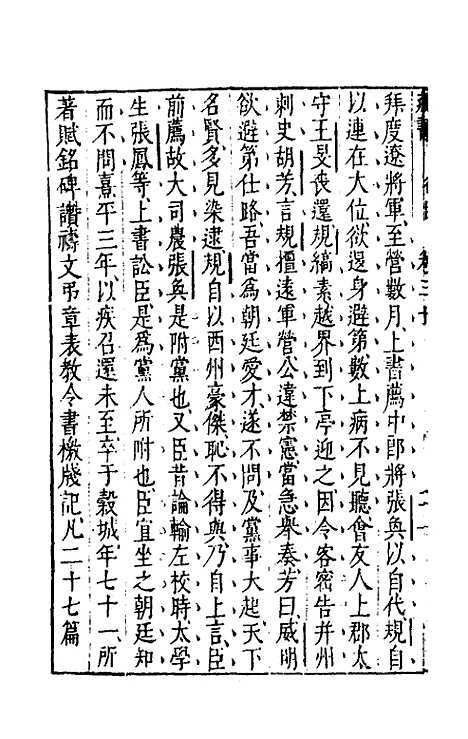 拜度遼將軍至營數月上書薦中郎將張奐以自代規自
以連在大位欲退身避第數上病不見聽會友人上郡太
守王旻喪還規縞素越界到下亭迎之因令客密告并州
刺史胡芳言規擅遠軍營公違禁憲當急舉奏芳曰威明
欲避第仕路吾當爲朝廷愛才遂不問及黨事大起天下
名賢多見染逮規自以西州豪傑恥不得與乃自上言臣
前薦故大司農張奐是附黨也又臣昔論輸左校時太學
生張鳳等上書訟臣是爲黨人所附也臣宜坐之朝廷知
而不問熹平三年以疾召還未至卒于穀城年七十一所
著賦銘碑讚禱文弔章表教令書檄牋記凡二十七篇